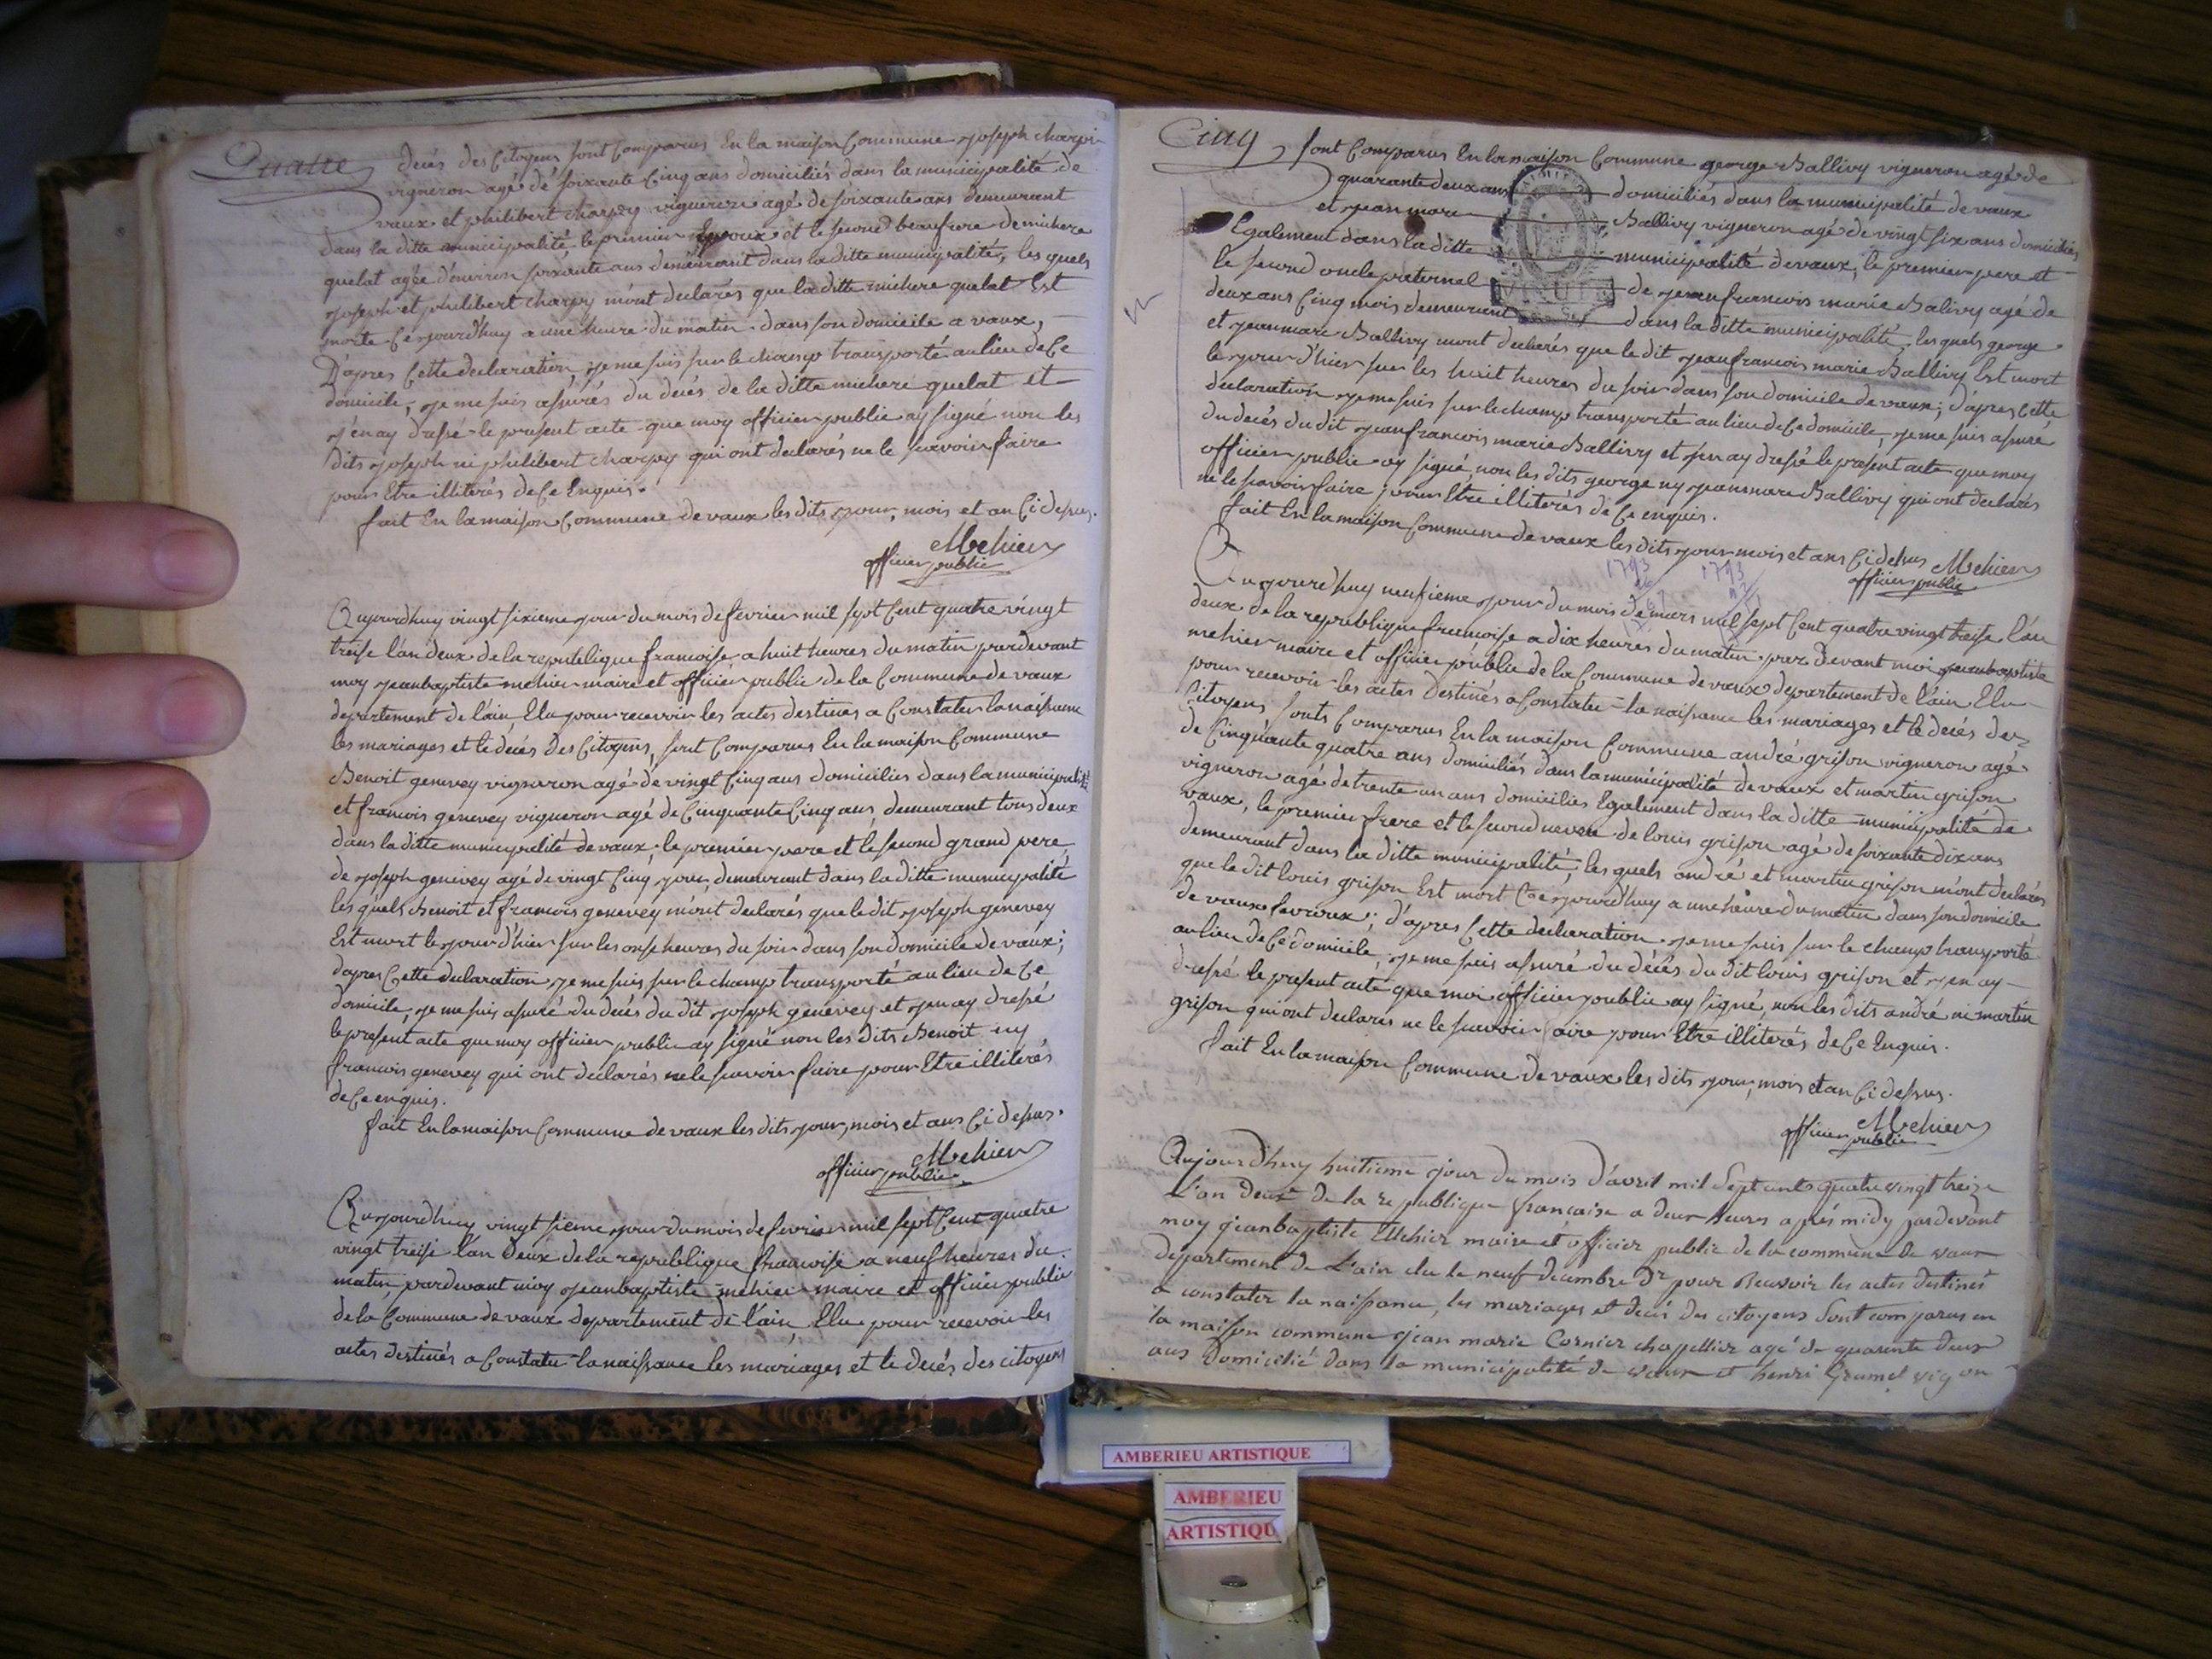 Quatre
decés des Citoyens sont Comparus En la maison Commune joseph charpy
vigneron agé de soixante Cinq ans domiciliés dans la municipalité de
vaux et philibert charpy vigneron agé de soixante ans demeurant
dans la ditte municipalité, le premier Epoux et le second beaufrere de michere
quelat agée d'environ soixante ans demeurant dans la ditte municipalité, les quels
joseph et philibert charpy m'ont declarés que la ditte michere quelat Est
morte Cejourd'huy a une heure du matin dans son domicile a vaux,
D'apres Cette declaration je me suis sur le champ transporté au lieu de Ce
domicile, je me suis assurés du decés de la ditte michere quelat et
j'en ay dressé le present acte que moy officier public ay signé non les
dits joseph ni philibert charpy qui ont declarés ne le scavoir faire
pour Etre illiterés de Ce Enquis.
fait En la maison Commune de vaux les dits jour, mois et an Ci dessus.
Mehier
officier public
Aujourdhuy vingt sixieme jour du mois de fevrier mil sept Cent quatre vingt
treise l'an deux de la republique francoise a huit heures du matin pardevant
moy jeanbaptiste mehier maire et officier public de la Commune de vaux
departement de l'ain Elu pour recevoir les actes destines a Constater la naissance
les mariages et le decés des Citoyens, sont Comparus En la maison Commune
Benoit genevey vigneron agé de vingt Cinq ans domicilies dans la municipalité
et francois genevey vigneron agé de Cinquante Cinq ans, demeurant tous deux
dans la ditte municipalité de vaux, le premier pere et le second grand pere
de joseph genevey agé de vingt Cinq jour, demeurant dans la ditte municipalité
les quels Benoit et francois genevey m'ont declarés que le dit joseph genevey
Est mort le jour d'hier sur les onse heures du soir dans son domicile de vaux;
d'apres Cette declaration je me suis sur le champ transporté au lieu de Ce
domicile, je me suis assuré du decés du dit joseph genevey et j'en ay dressé
le present acte que moy officier public ay signé non les dits Benoit ny
francois genevey qui ont declarés ne le scavoir faire pour Etre illiterés
de Ce enquis.
fait En la maison Commune de vaux les dits jour, mois et ans Ci dessus.
Mehier
officier public
Aujourdhuy vingt sieme jour du mois de fevrier mil sept Cent quatre
vingt treise l'an Deux de la republique francoise a neuf heures du
matin, pardevant moy jeanbaptiste mehier maire et officier public
de la Commune de vaux departement de l'ain, Elu pour recevoir les
actes destinés a Constater la naissance les mariages et le decés des citoyens
Cinq
sont Comparus En la maison Commune george Ballivy vigneron agé de
quarante deux ans domiciliés dans la municipalité de vaux
et jean marc Ballivy vigneron agé de vingt six ans domiciliés
Egalement dans la ditte municipalité de vaux, le premier pere et
le second oncle paternel de jeanfrancois marie Balivy agé de
deux ans Cinq mois demeurant dans la ditte municipalité, les quels george
et jeanmarc Ballivy mont declarés que le dit jeanfrancois marie Ballivy Est mort
le jour d'hier sur les huit heures du soir dans son domicile de vaux; d'apres Cette
declaration je me suis sur le champ transporté au lieu de Ce domicile, je me suis assuré
du decés du dit jeanfrancois marie Ballivy et j'en ay dressé le present acte que moy
officier public ay signé, non les dits george ny jeanmarc Ballivy qui ont declarés
ne le scavoir faire pour Etre illiterés de Ce enquis.
fait En la maison Commune de vaux les dits jour mois et ans Ci dessus Mehier
officier public
1793 1793
Aujourdhuy neufieme jour du mois de mars mil sept Cent quatre vingt treise l'an
deux de la republique francoise a dix heures du matin par devant moi jeanbaptiste
mehier maire et officier public de la Commune de vaux departement de l'ain Elu
pour recevoir les actes Destinés a Constater la naissance les mariages et le decés des
Citoyens, sonts Comparus En la maison Commune andré grison vigneron agé
de Cinquante quatre ans domiciliés dans la municipalité de vaux et martin grison
vigneron agé de trente un ans domicilies Egalement dans la ditte municipalité de
vaux, le premier frere et le second neveu de louis grison agé de soixante dix ans
demeurant dans la ditte municipalité, les quels andré et martin grison m'ont declarés
que le dit louis grison Est mort Cejourd'huy a une heure du matin dans son domicile
de vaux fevroux; d'apres Cette declaration je me suis sur le champ transporté
au lieu de Ce domicile, je me suis assuré du décés du dit louis grison et j'en ay
dressé le present acte que moi officier public ay signé, non les dits andré ni martin
grison qui ont declarés ne le scavoir faire pour Etre illiterés de Ce Enquis.
fait En la maison Commune de vaux les dits jour, mois et an Ci dessus.
Mehier
officier public
Aujourd'huy huitieme jour du mois d'avril mil Sept cent quatre vingt treize
L'an deux de la republique francaise a deux heures aprés midy pardevant
moy jeanbaptiste Mehier maire et officier public de la commune de vaux
departement de L'ain elu le neuf decembre dr pour Recevoir les actes destinés
a constater la naissance, les mariages et decés des citoyens Sont comparus en
la maison commune jean marie Cornier chapellier agé de quarante deux
ans Domicilié dans la municipalité de vaux et henri Grumel vigon
AMBERIEU ARTISTIQUE
AMBERIEU
ARTISTIQU